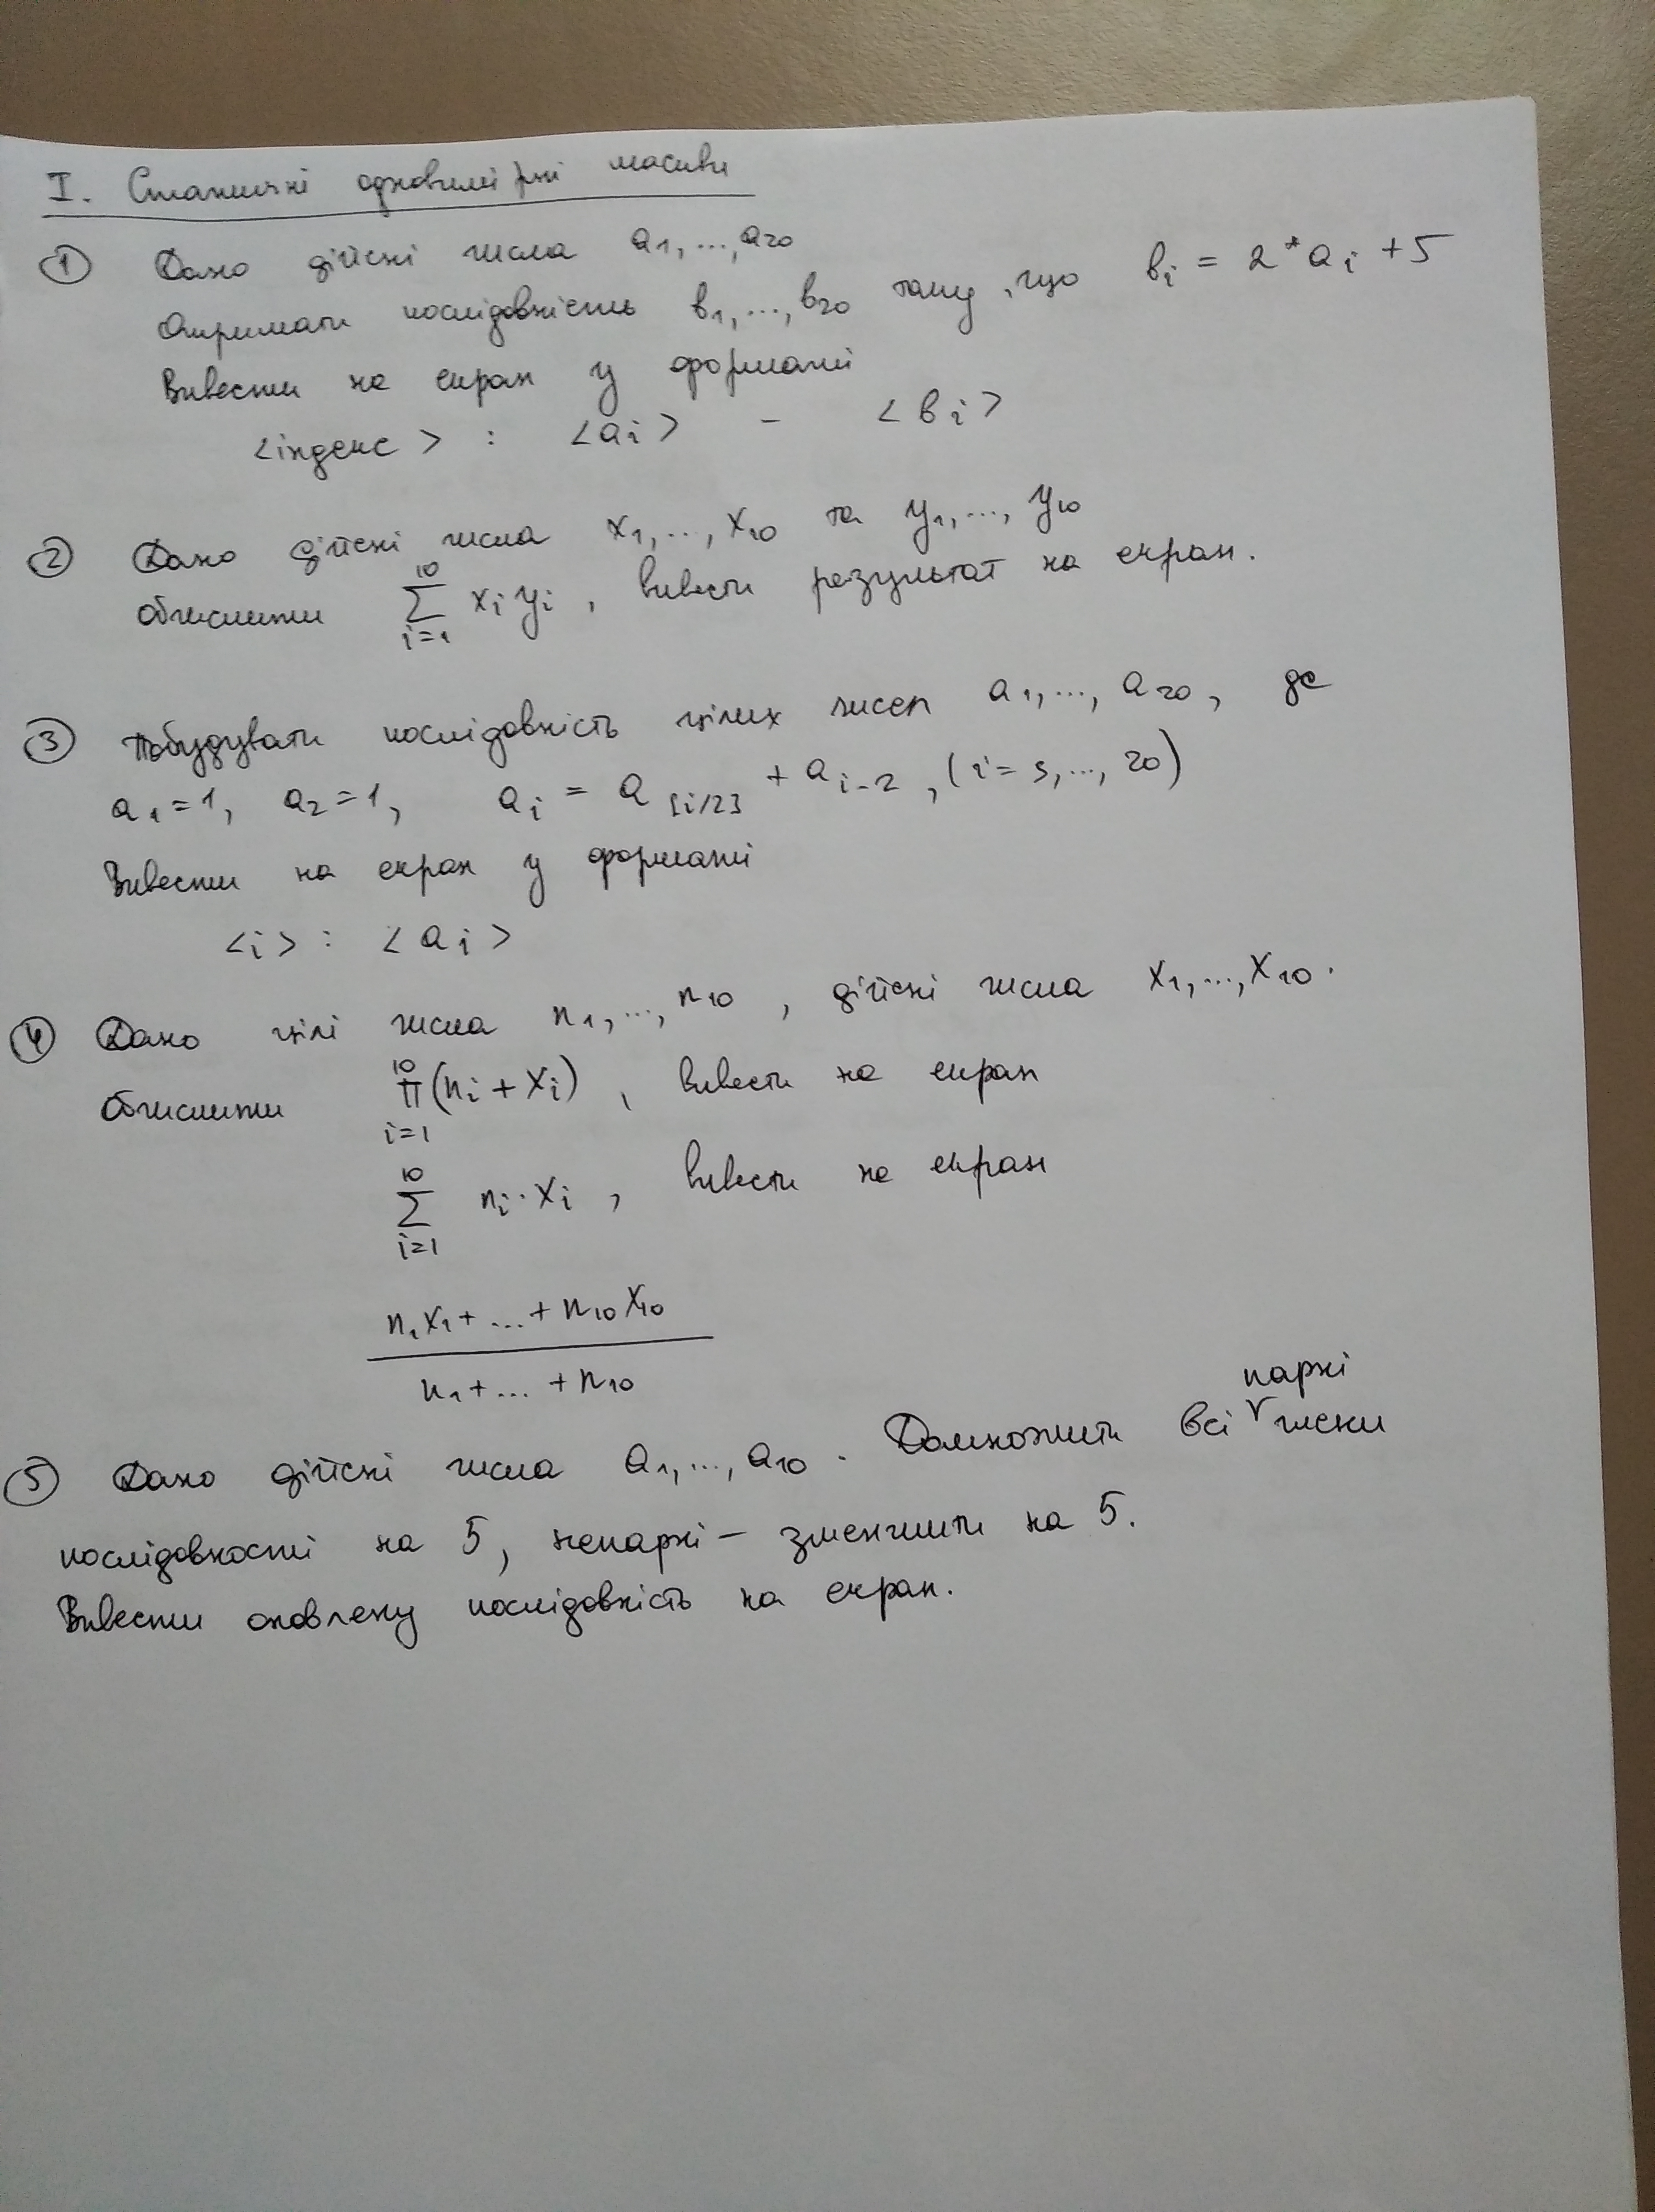 I. Статичні одновимірні масиви
① Дано дійсні числа a₁, ..., a₂₀
Отримати послідовність b₁, ..., b₂₀ таку, що bᵢ = 2*aᵢ + 5
Вивести на екран у форматі
<індекс> : <aᵢ> - <bᵢ>
② Дано дійсні числа x₁, ..., x₁₀ та y₁, ..., y₁₀
Обчислити ∑ᵢ₌₁¹⁰ xᵢ yᵢ , вивести результат на екран.
③ Побудувати послідовність цілих чисел a₁, ..., a₂₀, де
a₁ = 1, a₂ = 1, aᵢ = a_[i/2] + aᵢ₋₂ , (i = 3, ..., 20)
Вивести на екран у форматі
<i> : <aᵢ>
④ Дано цілі числа n₁, ..., n₁₀ , дійсні числа x₁, ..., x₁₀.
Обчислити ∏ᵢ₌₁¹⁰ (nᵢ + xᵢ) , вивести на екран
∑ᵢ₌₁¹⁰ nᵢ · xᵢ , вивести на екран
n₁x₁ + ... + n₁₀x₁₀
n₁ + ... + n₁₀
⑤ Дано дійсні числа a₁, ..., a₁₀ . Домножити всі парні члени
послідовності на 5, непарні – зменшити на 5.
Вивести оновлену послідовність на екран.